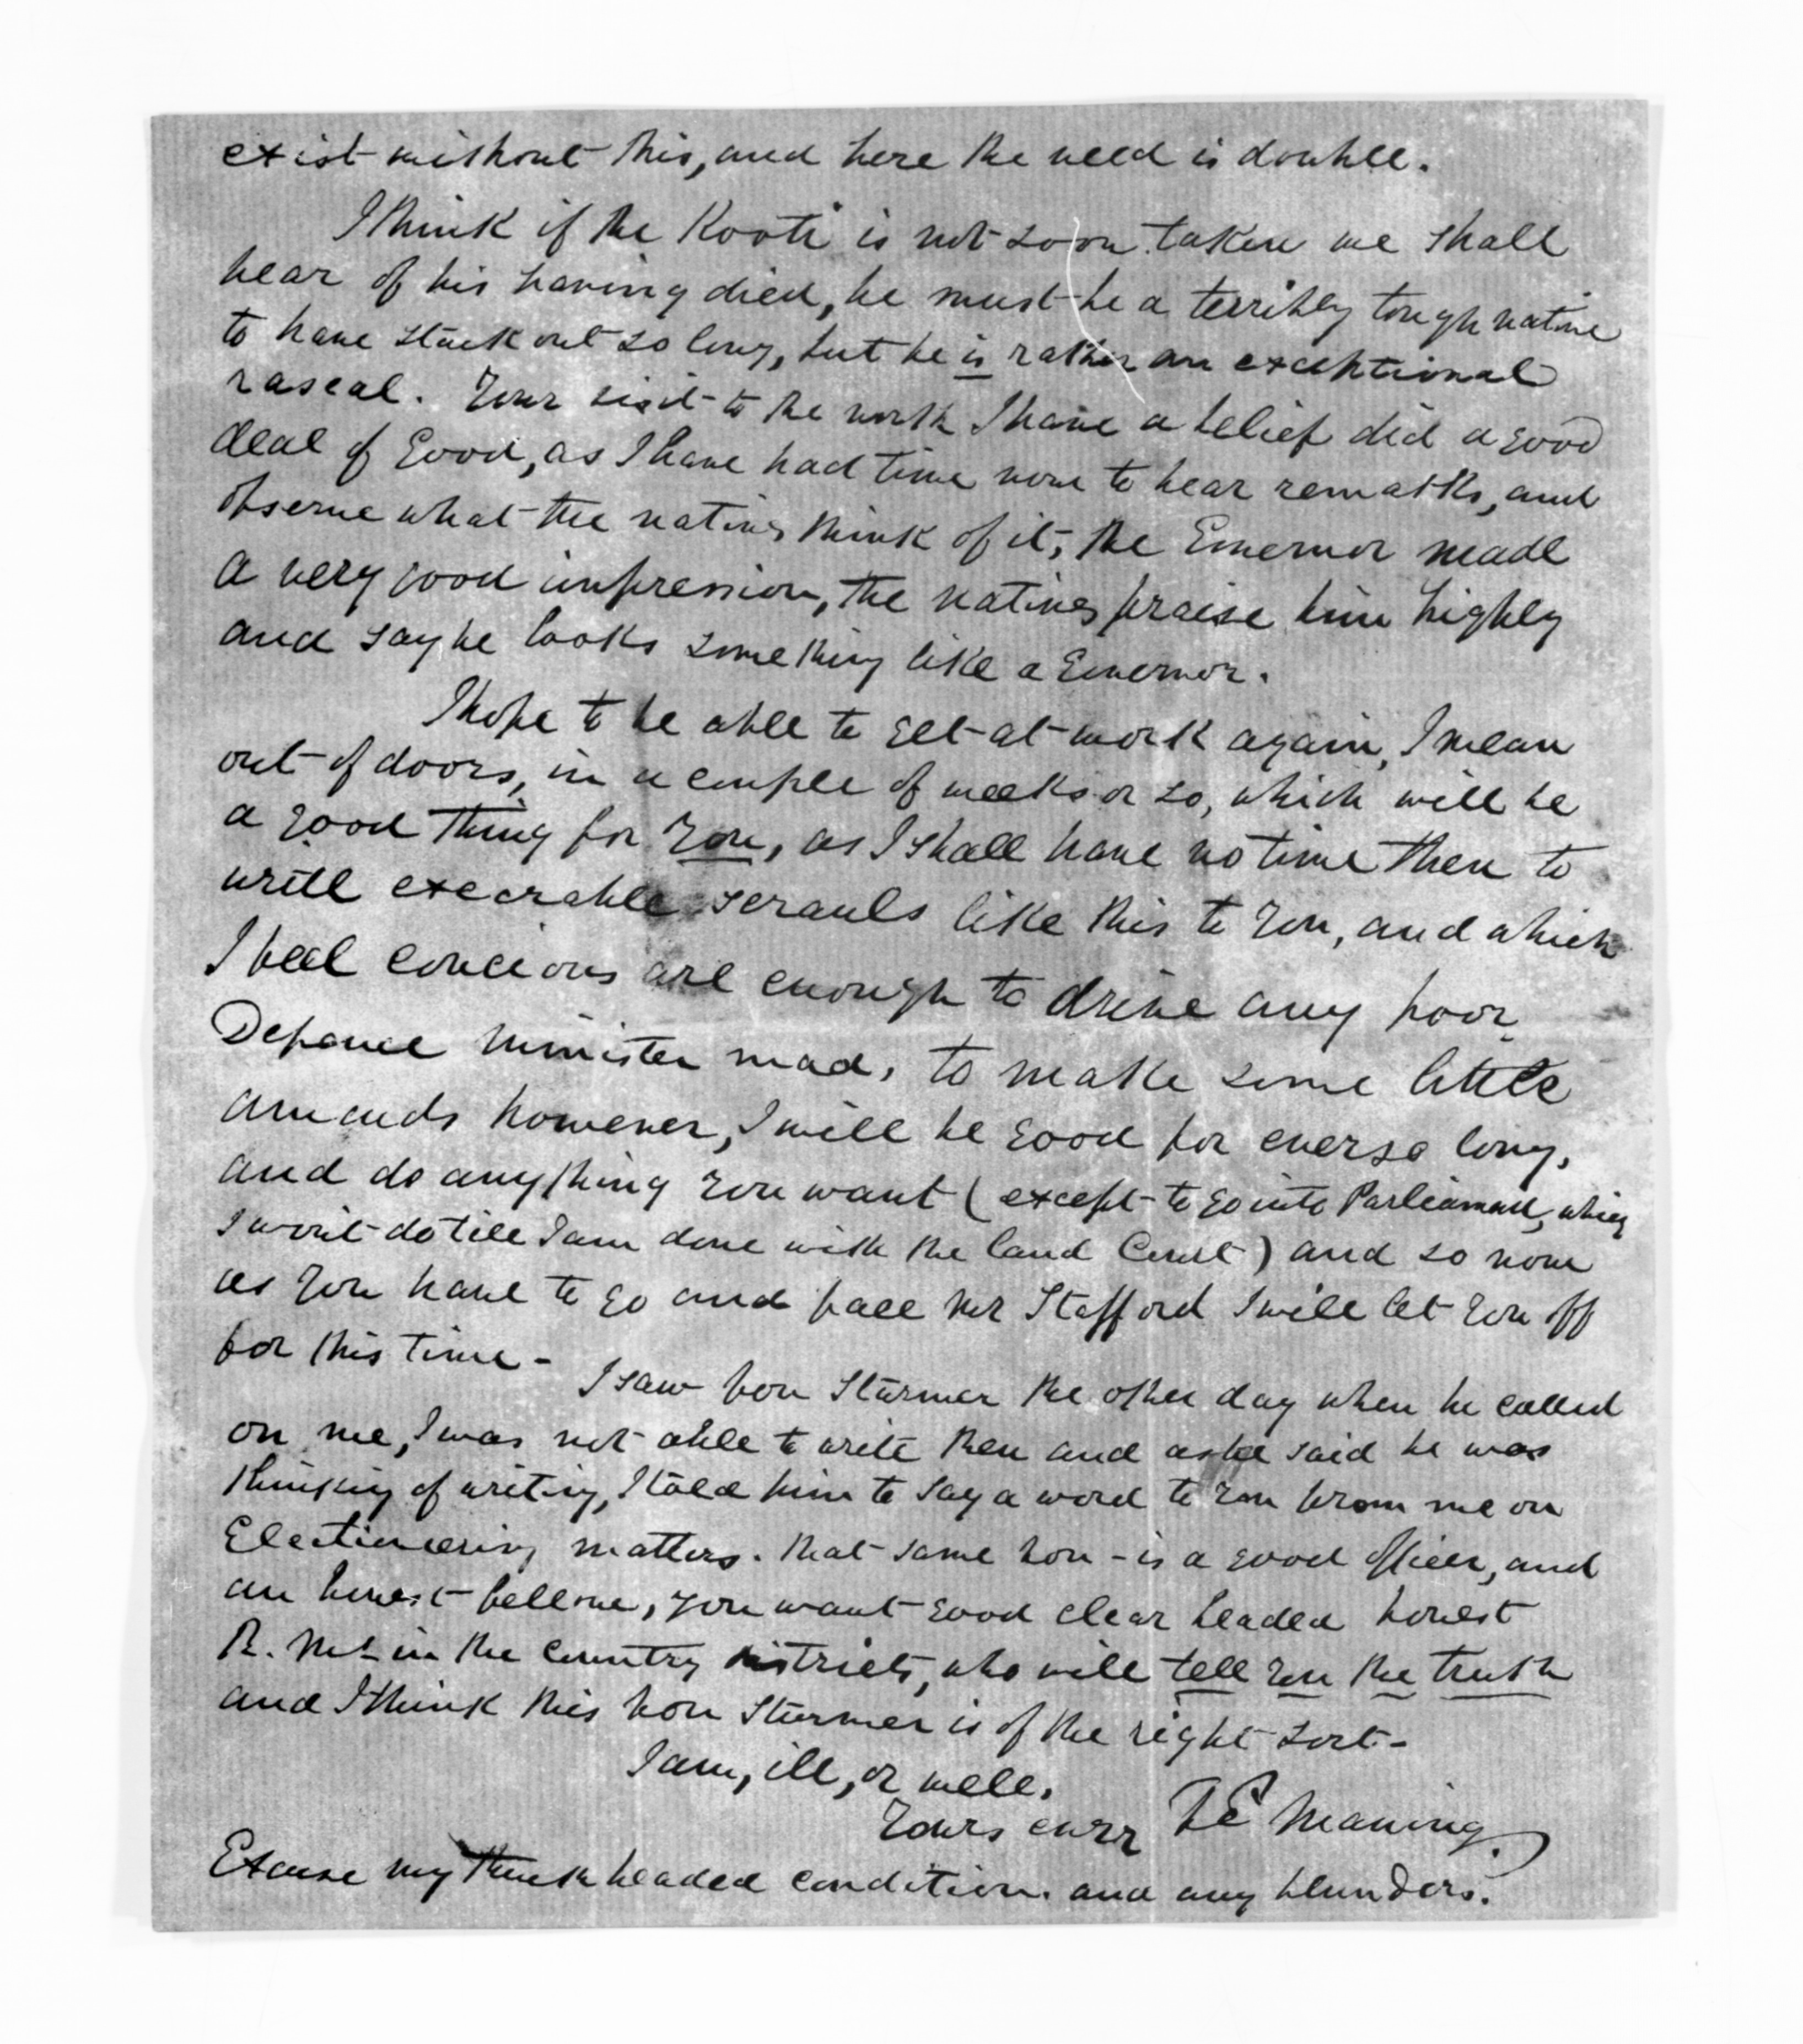 exist without this, and here the need is double.
I think if the Kooti is not soon taken we shall
hear of his having died, he must be a terribly tough native
to have stuck out so long, but he is rather an exceptional
rascal. Your visit to the north I have a belief did a good
deal of Good, as I have had time now to hear remarks, and
observe what the natives think of it, the Governor made
a very good impression, the natives praise him highly
and say he looks something like a Governor.
I hope to be able to get at work again, I mean
out of doors, in a couple of weeks or so, which will be
a good thing for you, as I shall have no time then to
write execrable scrauls like this to you, and which
I feel concious are enough to drive any poor
Defence Minister mad, to make some little
amends however, I will be good for ever so long,
and do anything you want (except to go into Parliament, which
I wont do till I am done with the land Court) and so now
as you have to go and face Mr Stafford I will let you off
for this time -
I saw von Stürmer the other day when he called
on me, I was not able to write then and as he said he was
thinking of writing, I told him to say a word to you from me on
Electioneering matters. that same von - is a good officer, and
an honest fellow, you want good clear headed honest
R. Ms in the country districts, who will tell you the truth
and I think this von Sturmer is of the right sort -
I am, ill, or well,
Yours ever F E Maning.
Excuse my thick headed condition. and any blunders.